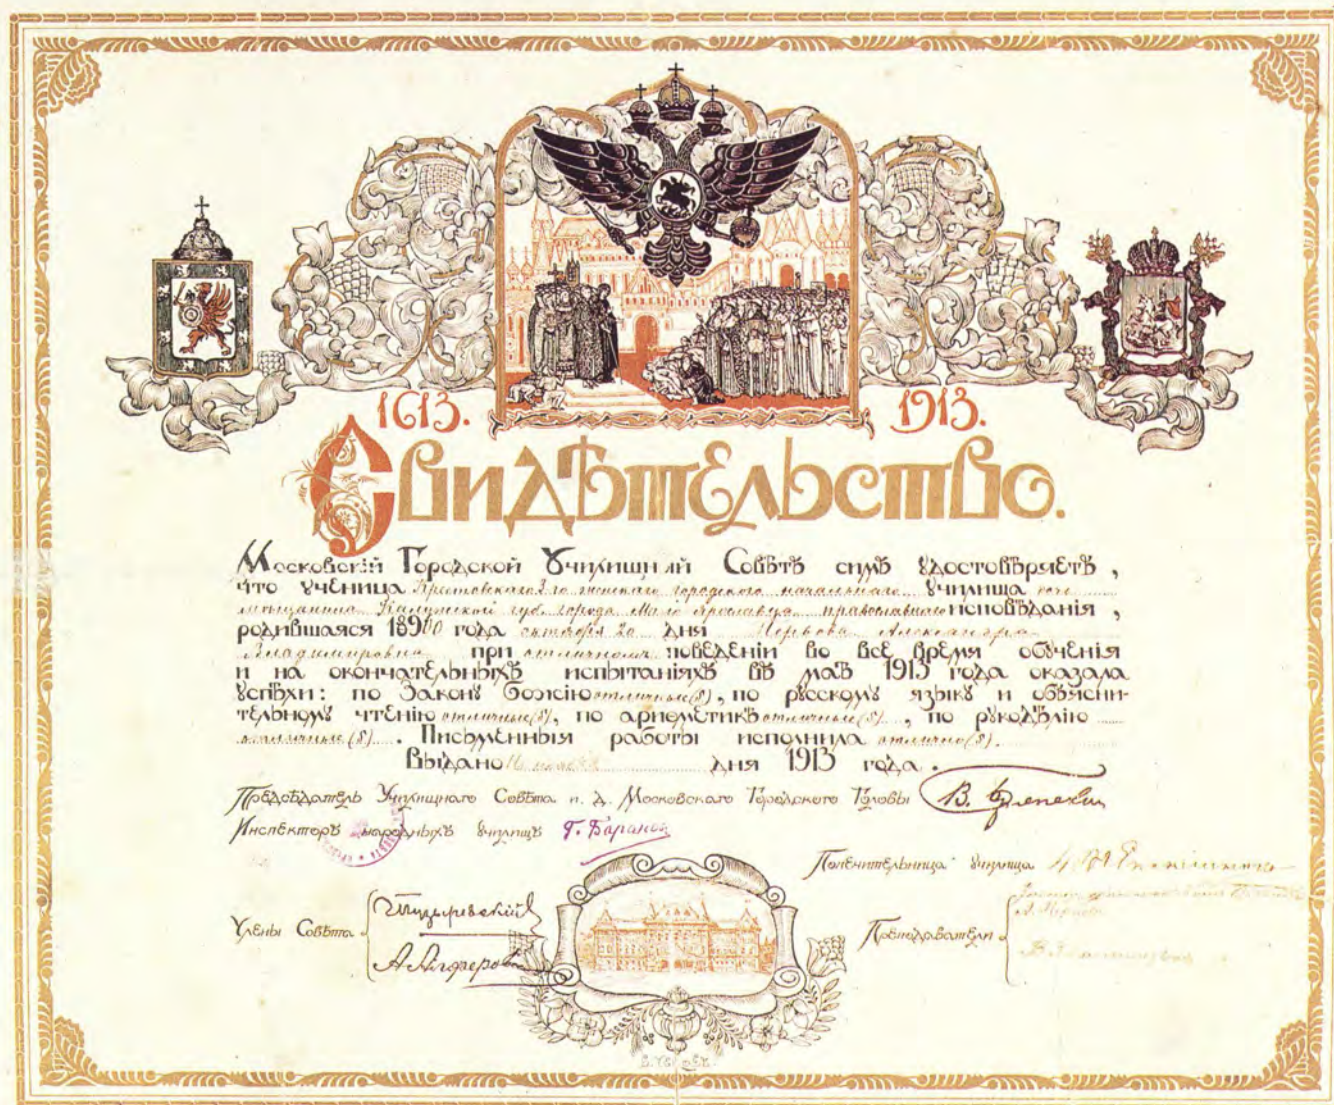 1613. 1913.
Свидѣтельство.
Московскій Городской Училищный Совѣтъ симъ удостовѣряетъ,
что ученица Крестовскаго 3-го женскаго городского начальнаго училища дочь
мѣщанина Калужской губ. города Мало Ярославца православнаго исповѣданія,
родившаяся 1900 года октября 20 дня Александра
Владимировна при отличномъ поведеніи во все время обученія
и на окончательныхъ испытаніяхъ въ маѣ 1913 года оказала
успѣхи: по Закону Божію отличные (5), по русскому языку и объясни-
тельному чтенію отличные (5), по ариѳметикѣ отличные (5), по рукодѣлію
отличные (5). Письменныя работы исполнила отлично (5).
Выдано дня 1913 года.
Предсѣдатель Училищнаго Совѣта и. д. Московскаго Городского Головы В. Брянскій
Инспекторъ народныхъ училищъ Г. Барановъ
Попечительница училища
Члены Совѣта
Пузыревскій
А. Алферовъ
Преподаватели